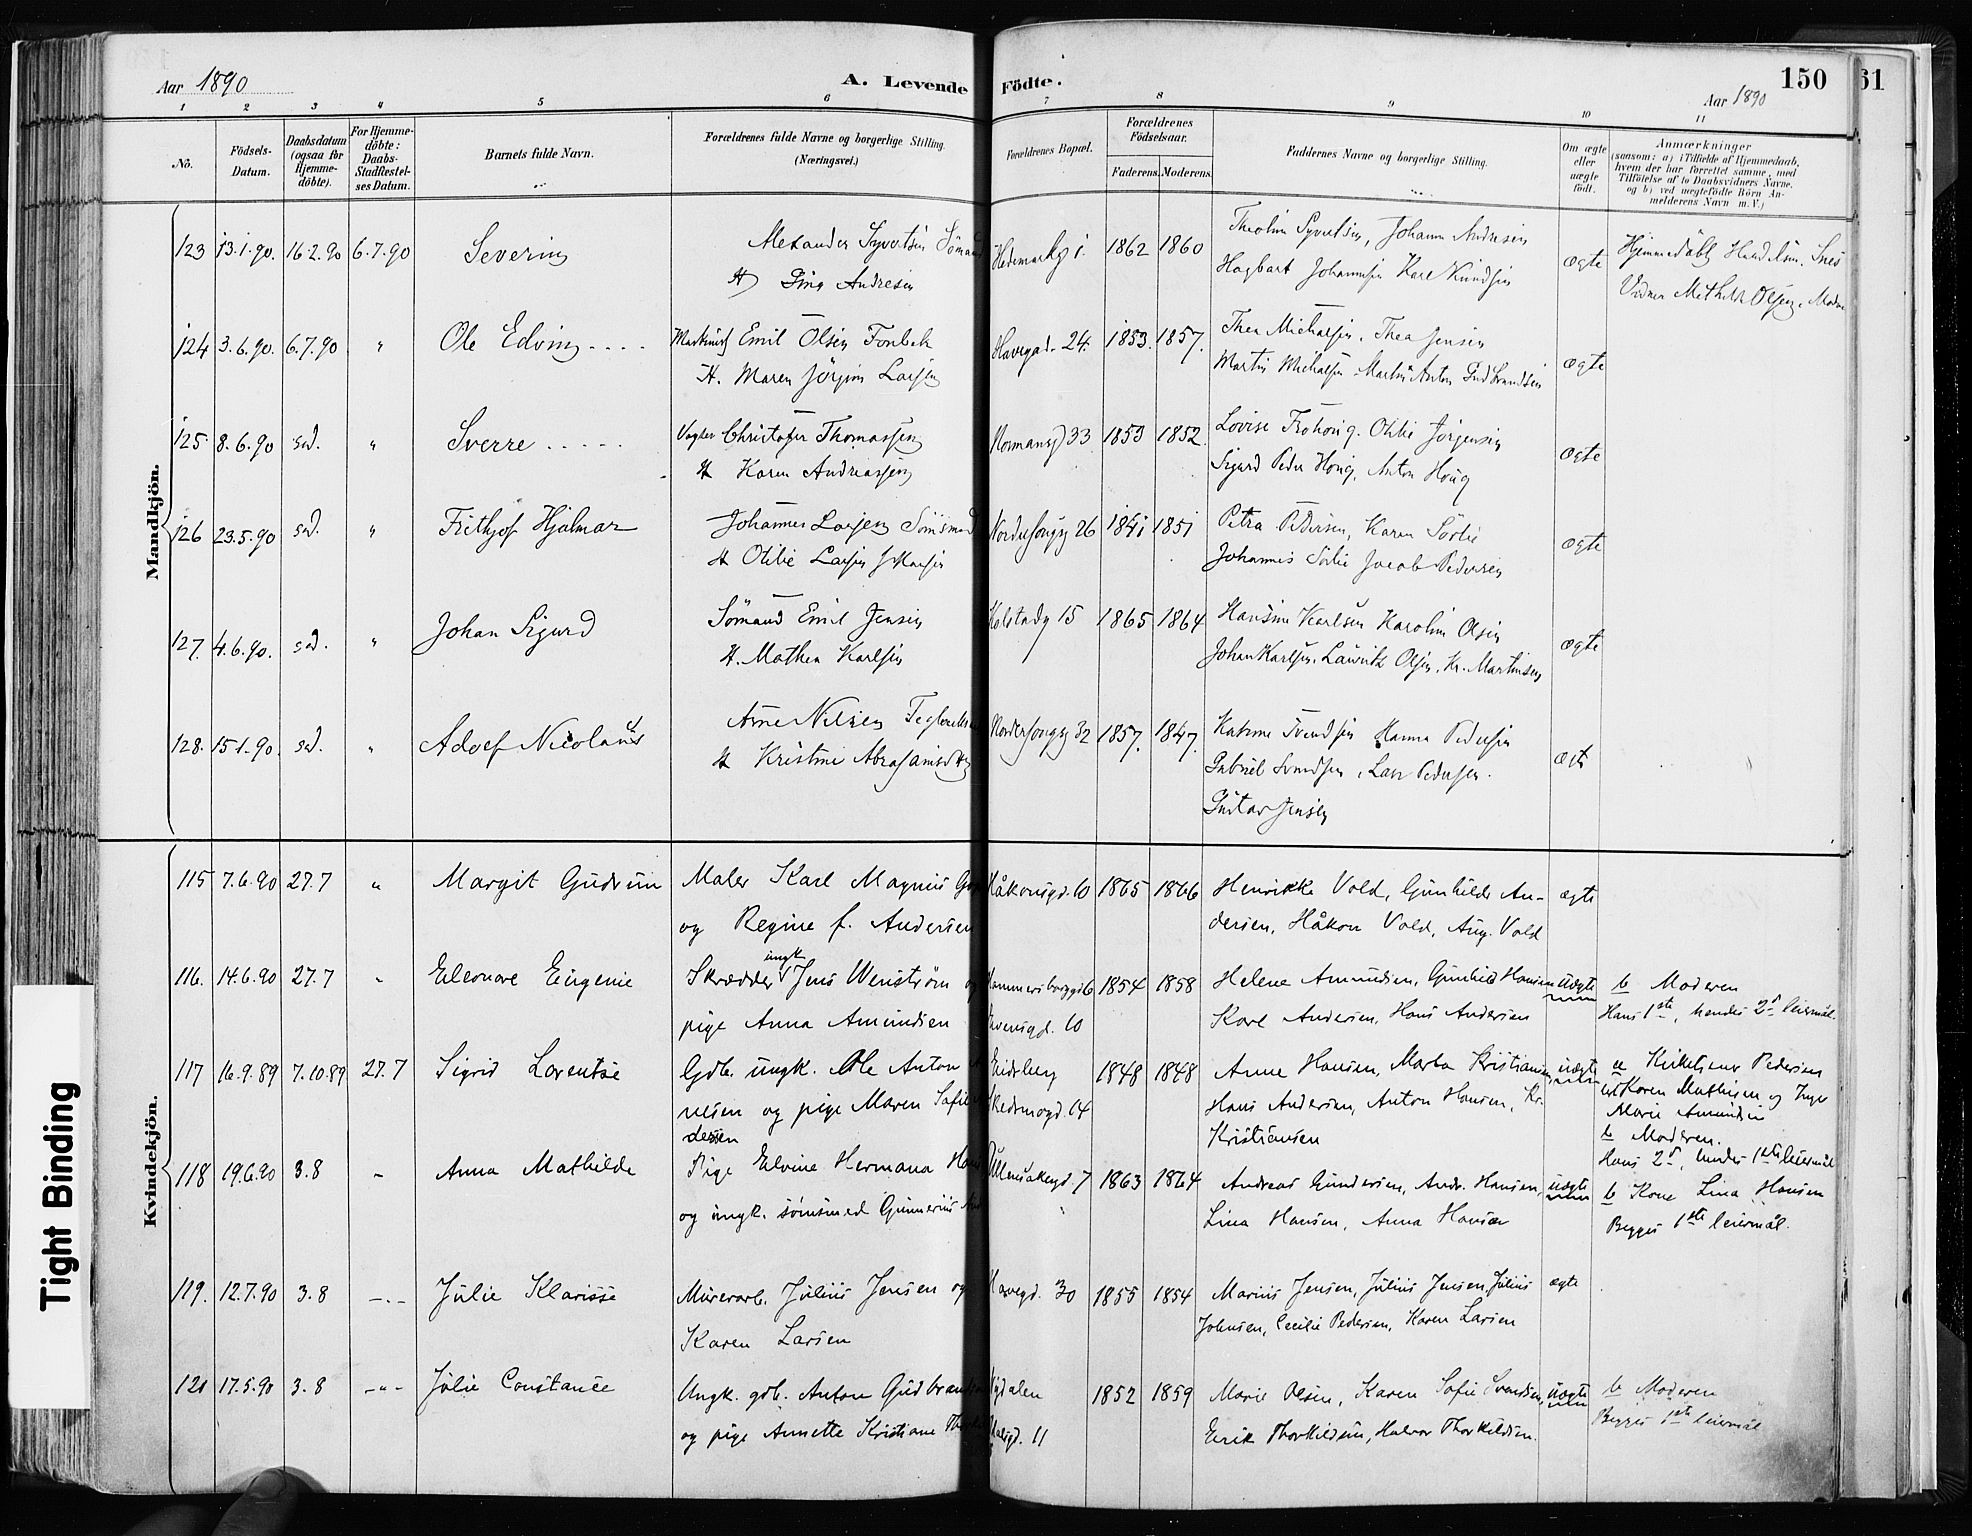 Aar 1890
A. Levende Födte.
150
61
Aar 1890
1 2 3 4 5 6 7 8 9 10 11
Nö.
Födsels-
Datum.
Daabsdatum
(ogsaa for
Hjemme-
döbte).
For Hjemme-
döbte:
Daabs-
Stadfæstel-
ses Datum.
Barnets fulde Navn.
Forældrenes fulde Navne og borgerlige Stilling.
(Næringsvei.)
Forældrenes Bopæl.
Forældrenes
Födselsaar.
Faderens. Moderens.
Faddernes Navne og borgerlige Stilling.
Om ægte
eller
uægte
födt.
Anmærkninger
(saasom: a) i Tilfælde af Hjemmedaab,
hvem der har forrettet samme, med
Tilföielse af to Daabsvidners Navne.
og b) ved uegtefödte Börn An-
melderens Navn m. V.)
Mandkjön.
123 13.1.90. 16.2.90 6.7.90 Severin Alexander Syvertsen Sömand Hedemarksg 1. 1862 1860 Syvertsen, Johann Andresen
Andresen Hagbart Johannesen Kare Knudsen ægte Hjemmedöbt
Vidner Olsen
124 3.6.90. 6.7.90 " Ole Edvin Emil Olsen Havegad. 24. 1853. 1857. Thea Michalsen, Thea Jensen
H. Maren Larsen Martin Michalsen Anton ægte
125 8.6.90 sad. " Sverre Vogter Christofer Thomassen Normansg 33 1853 1852. Lovise Otilie Jörgensen
H Karen Andreassen Sigurd Peder Höug, Anton Höug ægte
126 23.5.90 sad. " Frithjof Hjalmar Johannes Larsen Sömsmed 26 1841 1851 Petra Pedersen, Karen Sörlie
H Otilie Larsen Johannes Sörlie Jacob Pedersen ægte
127. 4.6.90. sad. " Johan Sigurd Sömand Emil Jensen Kolstadg 15 1865 1864 Karlsen Karoline Olsen
H. Mathea Karlsen Johan Karlsen, Lauritz Olsen, Kr. Martinsen ægte
128. 15.1.90. sad. " Adolf Nicolaus Arne Nilsen 32 1857. 1847. Svendsen Hanna Pedersen
H Kristine Gabriel Svendsen, Lars Pedersen. ægte
Gustav Jensen
Kvindekjön.
115 7.6.90 27.7 " Margit Gudrun Maler Karl Magnus Håkonsgd. 10 1865 1866 Henrikke Vold, Gunhilde An- ægte
og Regine f. Andersen dersen, Håkon Vold, Aug. Vold
116. 14.6.90 27.7 " Eleonore Eugenie Skrædder ungk Jens Wenström og Hammersborggd 6 1854 1858 Helene Amundsen, Gunhild Hansen uægte b Moderen
pige Anna Amundsen 10 Karl Andersen, Hans Andersen Hans 1ste, hendes 2d leiermål.
117 16.9.89 7.10.89 27.7 Sigrid Lorentse Gdb. ungk. Ole Anton Eidsberg 1848 1848 Anne Hansen, Marta Kristiansen uægte a Kirketjener Pedersen
nesen og pige Maren Sofie Skedsmogd. 14 Hans Andersen, Anton Hansen, Kr. Karen Mathisen og Inger
dersen Kristiansen Marie Amundsen
b Moderen.
Hans 2d, hendes 1ste leiermål
118 19.6.90 3.8 " Anna Mathilde Pige Elvine Hermana Ullensakergd 7 1863 1864 Andreas Gundersen, Andr. Hansen, uægte b Kone Lina Hansen
og ungk. sömsmed Gunnerius Lina Hansen, Anna Hansen Begges 1ste leiermål.
119. 12.7.90 3.8 -"- Julie Klarisse Murerarb. Julius Jensen og Havegd. 30 1855 1854 Marius Jensen, Julius Jensen, Julius ægte
Karen Larsen Johnsen, Cecilie Pedersen, Karen Larsen
120 17.5.90 3.8 -"- Julie Constance Ungk. gdb. Anton Gudbrandsen Sigdalen 1852 1859 Marie Olsen, Karen Sofie Svendsen, uægte b Moderen
og pige Annette Kristiane 11 Erik Thorkildsen, Halvor Thorkildsen. Begges 1ste leiermål
Tight Binding